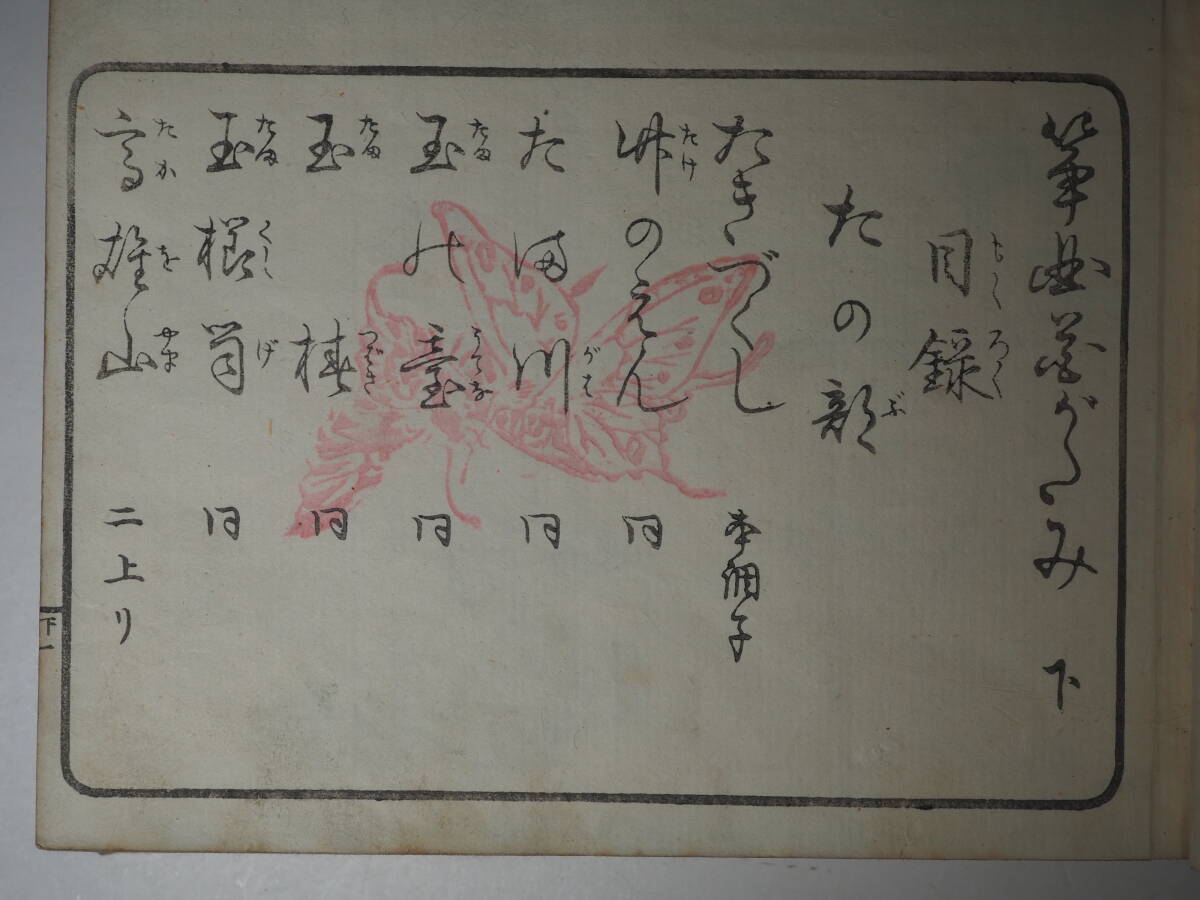 箏曲花がたみ 下
目録 もくろく
たの部 ぶ
たきづくし 本調子
竹のえん たけ 同
たま川 がは 同
玉の臺 たま うてな 同
玉椿 たま つばき 同
玉櫛笥 たま くし げ 同
高雄山 たか を やま 二上リ
下一